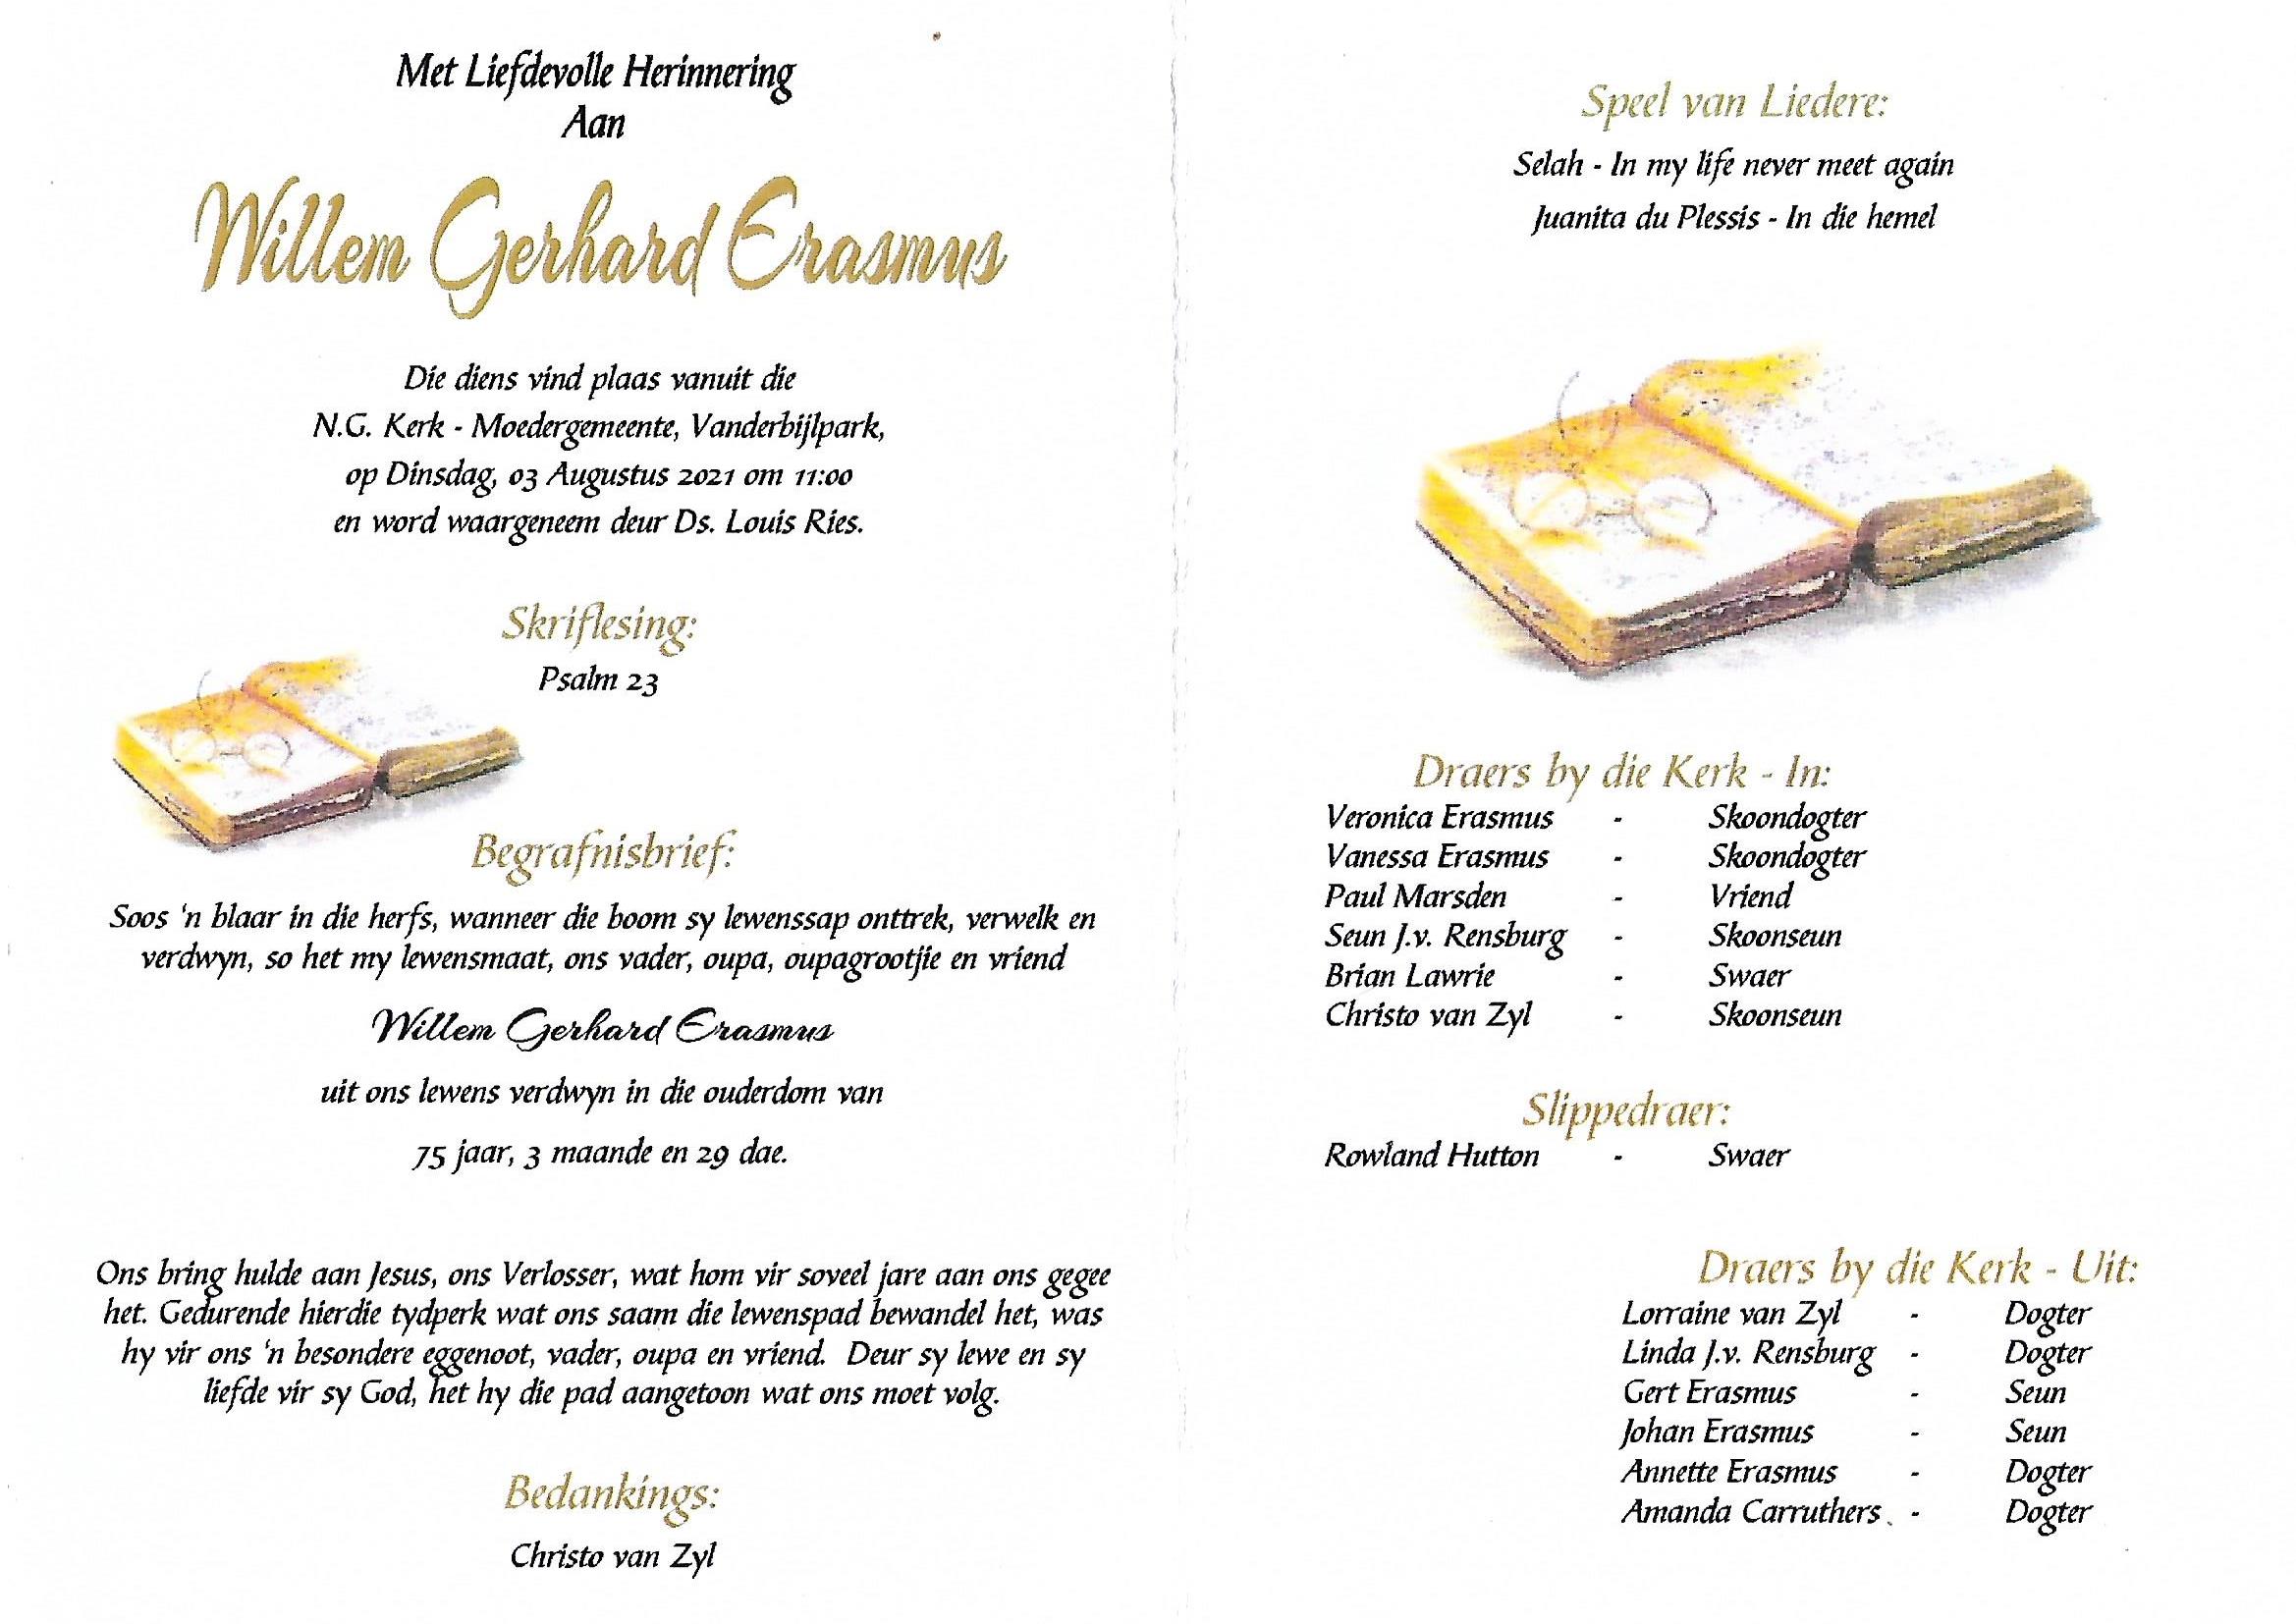 Met Liefdevolle Herinnering
Aan
Willem Gerhard Erasmus
Die diens vind plaas vanuit die
N.G. Kerk - Moedergemeente, Vanderbijlpark,
op Dinsdag, 03 Augustus 2021 om 11:00
en word waargeneem deur Ds. Louis Ries.
Skriflesing:
Psalm 23
Begrafnisbrief:
Soos 'n blaar in die herfs, wanneer die boom sy lewenssap onttrek, verwelk en
verdwyn, so het my lewensmaat, ons vader, oupa, oupagrootjie en vriend
Willem Gerhard Erasmus
uit ons lewens verdwyn in die ouderdom van
75 jaar, 3 maande en 29 dae.
Ons bring hulde aan Jesus, ons Verlosser, wat hom vir soveel jare aan ons gegee
het. Gedurende hierdie tydperk wat ons saam die lewenspad bewandel het, was
hy vir ons 'n besondere eggenoot, vader, oupa en vriend. Deur sy lewe en sy
liefde vir sy God, het hy die pad aangetoon wat ons moet volg.
Bedankings:
Christo van Zyl
Speel van Liedere:
Selah - In my life never meet again
Juanita du Plessis - In die hemel
Draers by die Kerk - In:
Veronica Erasmus - Skoondogter
Vanessa Erasmus - Skoondogter
Paul Marsden - Vriend
Seun J.v. Rensburg - Skoonseun
Brian Lawrie - Swaer
Christo van Zyl - Skoonseun
Slippedraer:
Rowland Hutton - Swaer
Draers by die Kerk - Uit:
Lorraine van Zyl - Dogter
Linda J.v. Rensburg - Dogter
Gert Erasmus - Seun
Johan Erasmus - Seun
Annette Erasmus - Dogter
Amanda Carruthers - Dogter